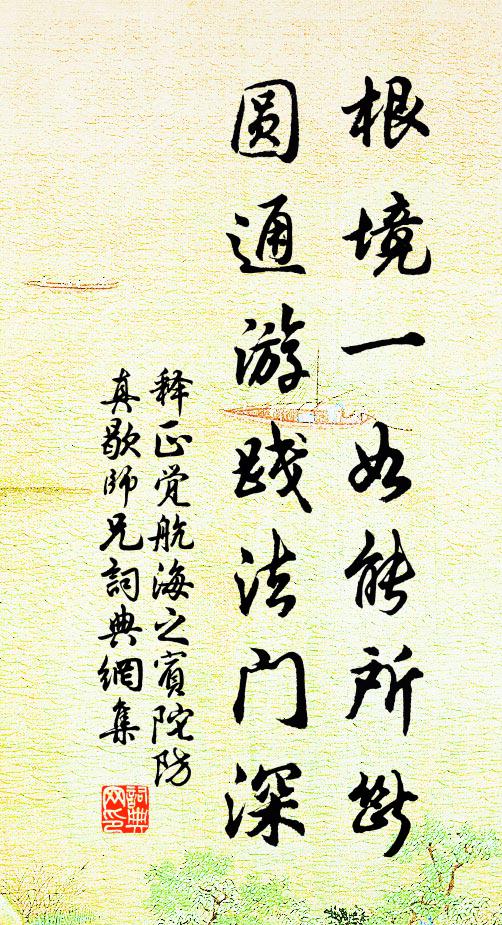 根境一如能所断
圆通游践法门深
释正觉航海之宾陀防
真歇师兄詞典網集
詞典网印